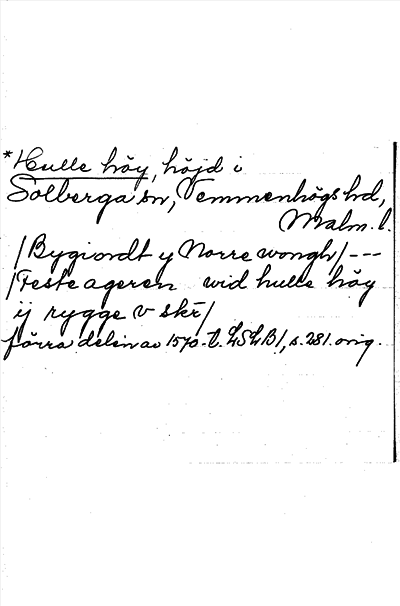 *Hulle höy, höjd i
Solberga sn, Vemmenhögs hd,
Malm. l.
/Bygiordt y Norre wongh/ ---
/Feste ageren wid hulle höy
ij rygge v skr/
förra delen av 1570-t. LSLB1, s. 281. orig.